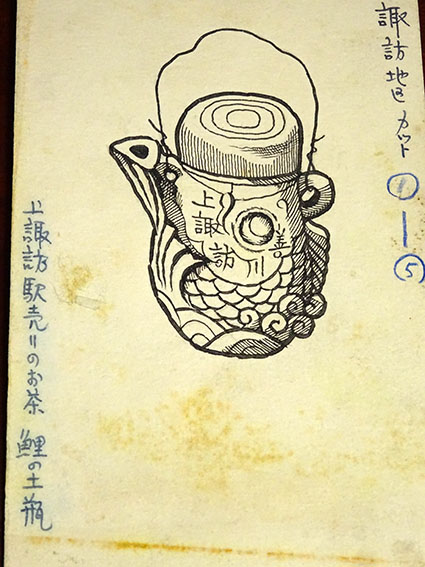 諏訪地区カット①ー⑤
上諏訪
善川
上諏訪駅売りのお茶 鯉の土瓶